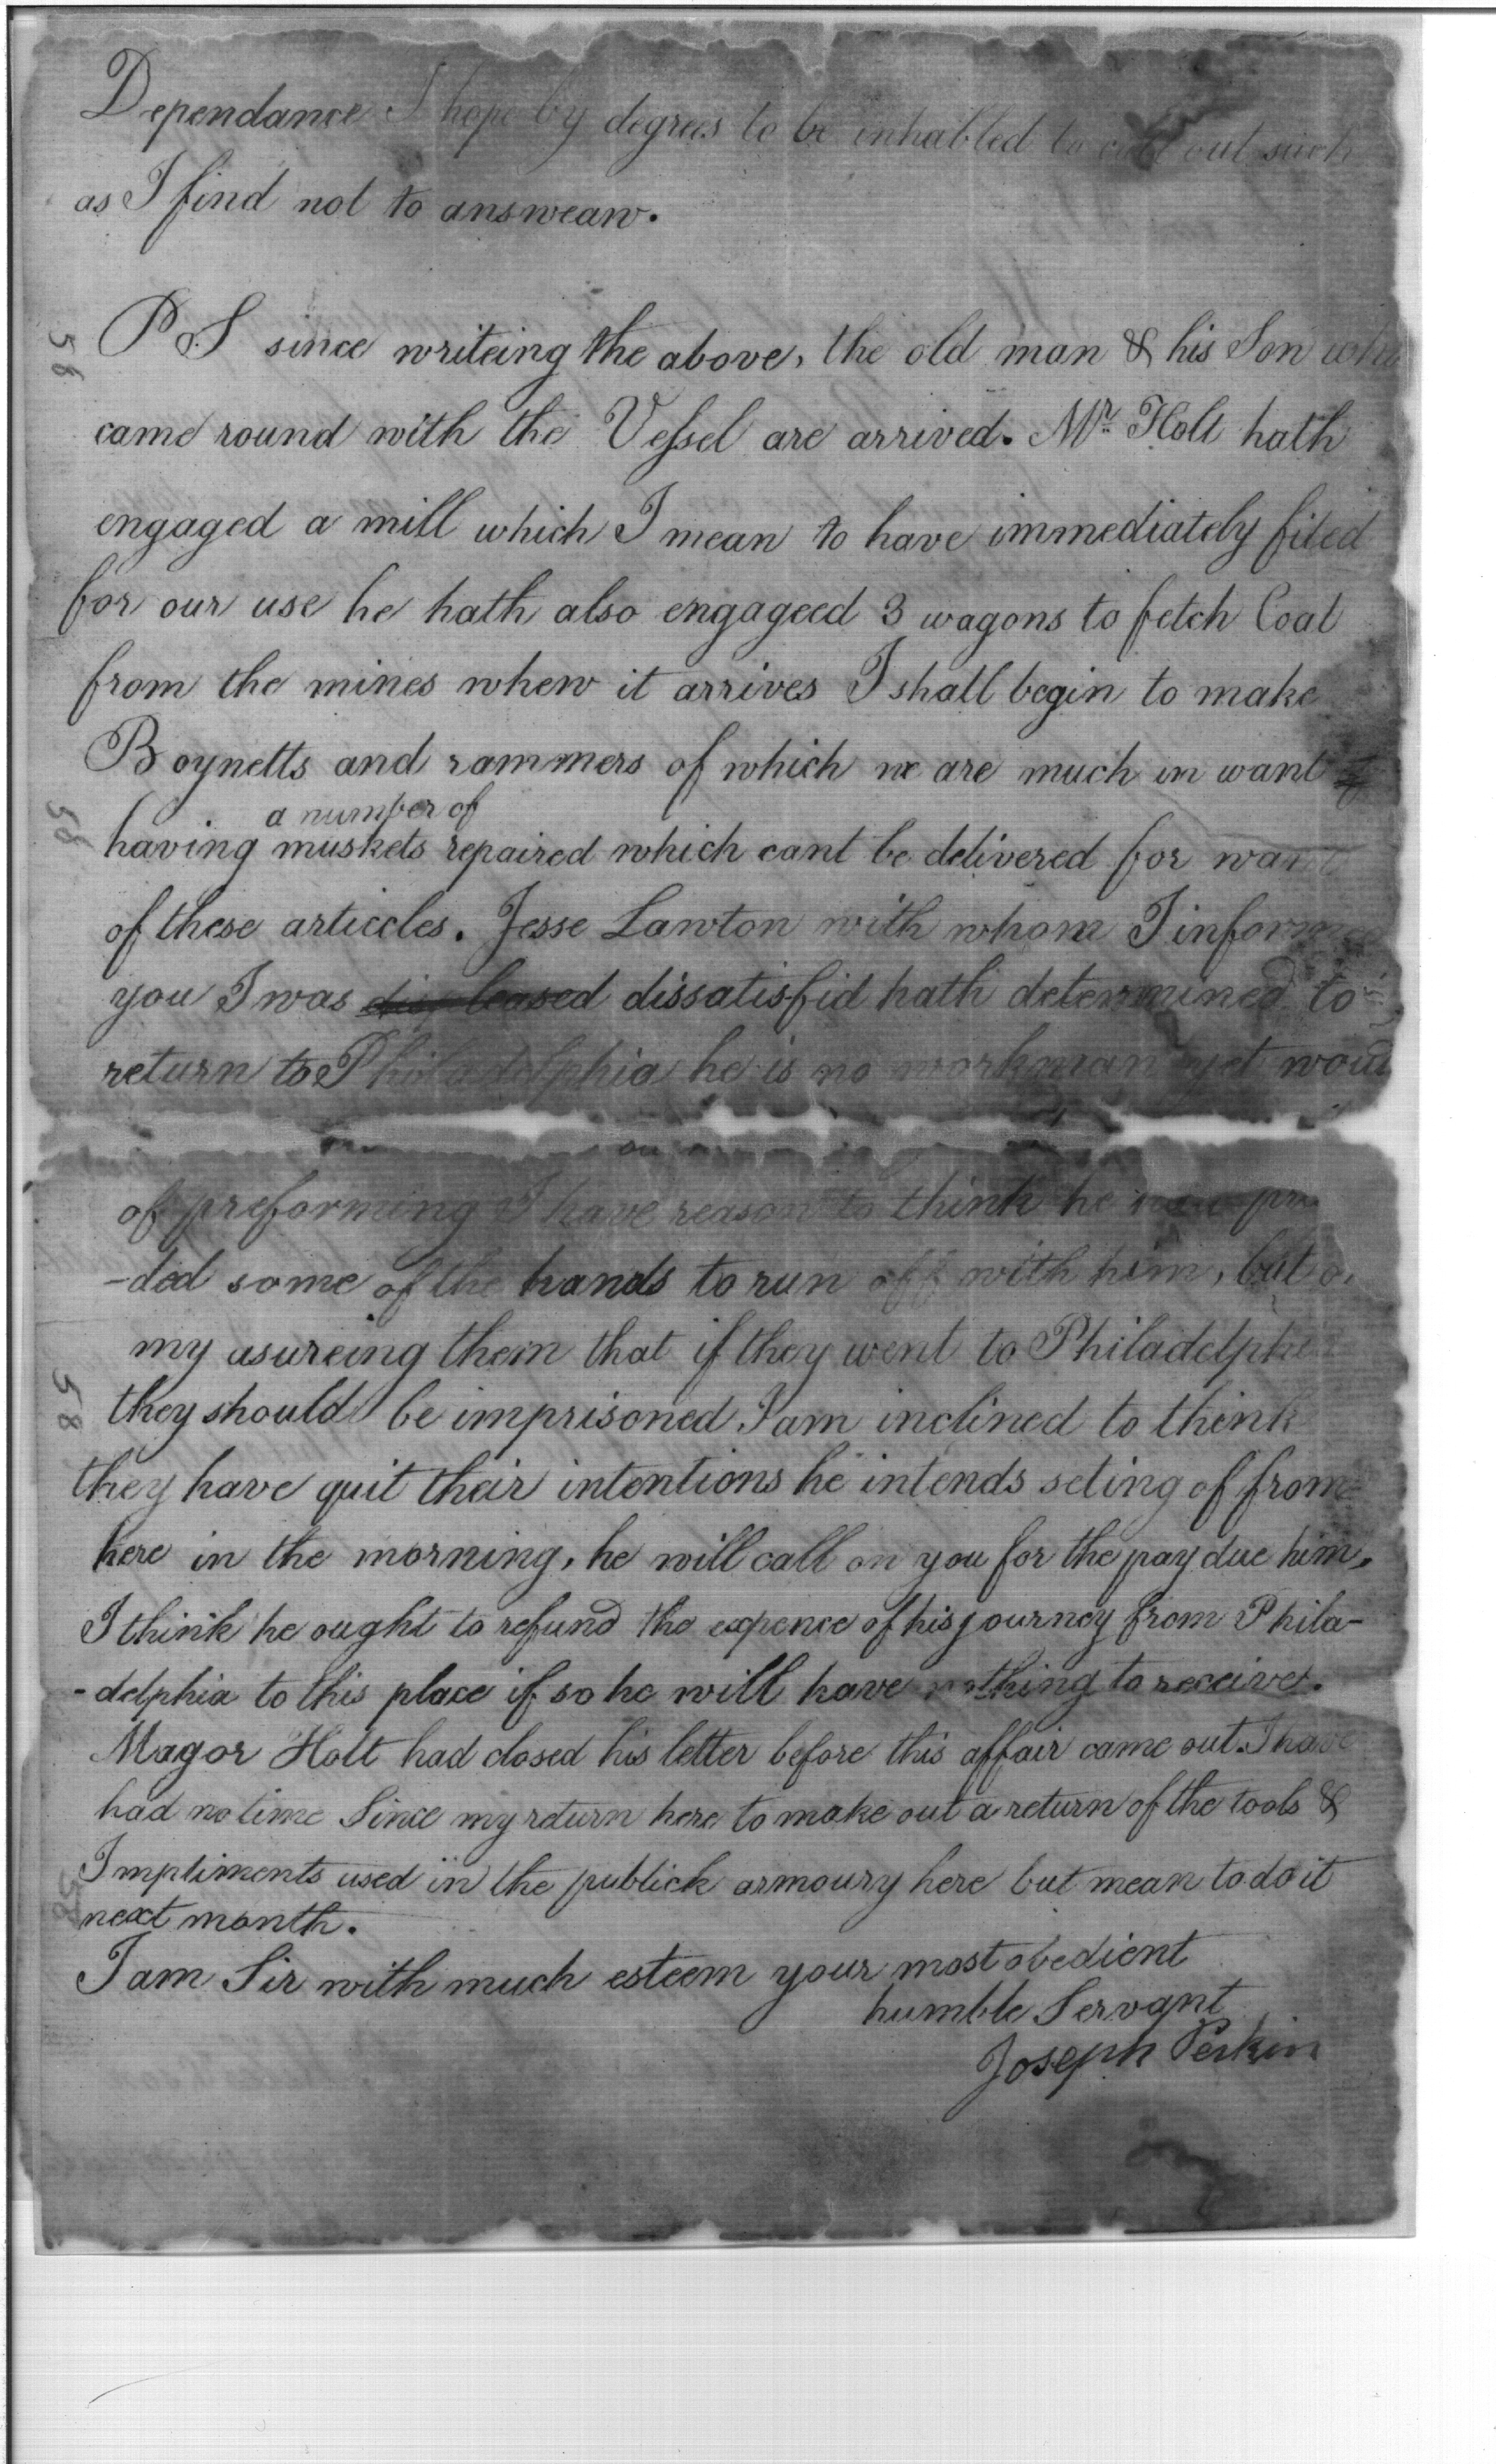 Dependance I hope by degrees to be inhabled to cull out such
as I find not to answear.
PS since writeing the above, the old man & his Son who
came round with the Vessel are arrived. Mr. Holt hath
engaged a mill which I mean to have immediately fited
for our use he hath also engageed 3 wagons to fetch Coal
from the mines when it arrives I shall begin to make
Boynetts and rammers of which we are much in want
a number of
having muskets repaired which cant be delivered for want
of these articcles. Jesse Lawton with whom I informed
you I was displeased dissatisfid hath determined to
return to Philadelphia he is no workman yet would
of preforming I have reason to think he
-ded some of the hands to run off with him, but
my asureing them that if they went to Philadelphia
they should be imprisoned I am inclined to think
they have quit their intentions he intends seting of from
here in the morning, he will call on you for the pay due him.
I think he ought to refund the expence of his journey from Phila-
-delphia to this place if so he will have nothing to receive.
Magor Holt had closed his letter before this affair came out. I have
had no time Since my return here to make out a return of the tools &
Impliments used in the publick armoury here but mean to do it
next month.
I am Sir with much esteem your most obedient
humble Servant
Joseph Perkin
58
58
58
58